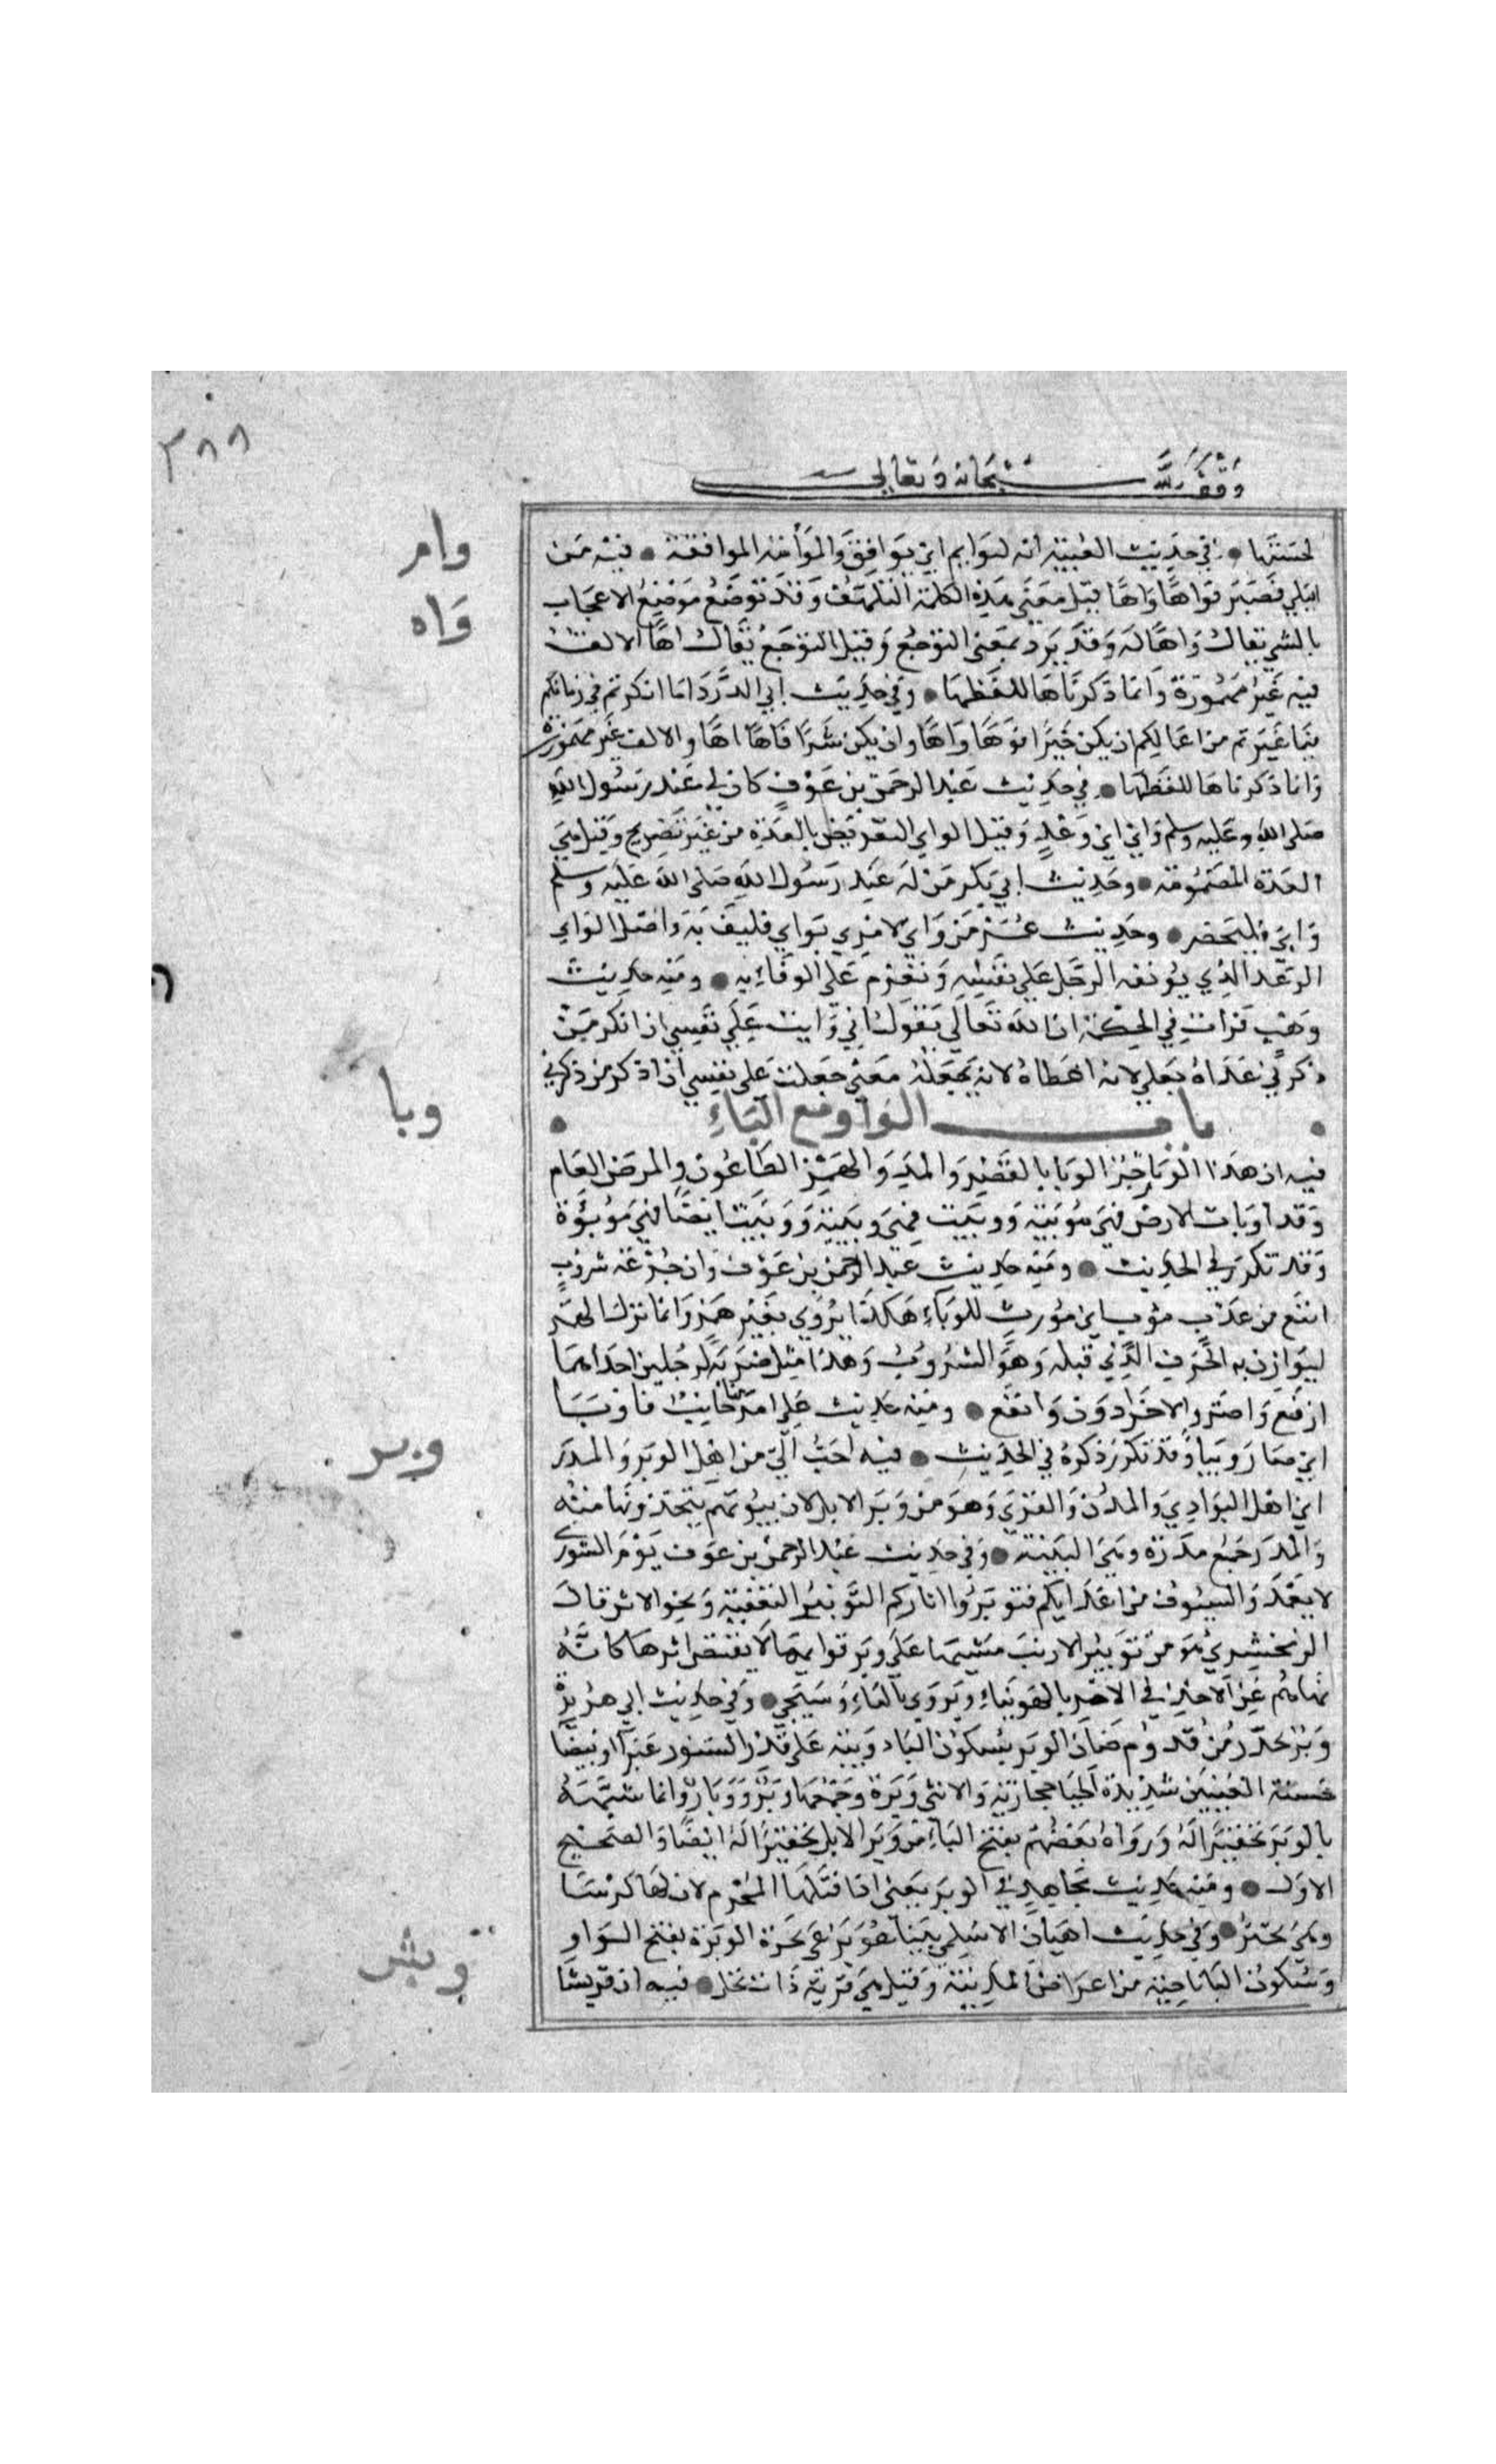 ٣٨٨
وقف لله سبحانه وتعالى
لحسنها • في حديث الغيبة انه ليوايم اي يوافق والمواءمة الموافقة • فيه من
وام
ابتلي فصبر فواها واها قيل معنى هذه الكلمة التلهف وقد توضع موضع الاعجاب
واه
بالشي يقال واها له وقد يرد بمعنى التوجع وقيل التوجع يقال اها الالف
فيه غير مهموزة وانما ذكرناها للفظها • وفي حديث ابي الدرداء ما انكرتم في زمانكم
فيما غيرتم من اعمالكم ان يكن خيرا فوها واها وان يكن شرا فاها اها والالف غير مهموزة
وانما ذكرناها للفظها • في حديث عبد الرحمن بن عوف كان لي عند رسول الله
صلى الله وعليه وسلم واي اي وعد وقيل الواي التعريض بالعدة من غير تصريح وقيل هي
العدة المضمونة • وحديث ابي بكر من له عند رسول الله صلى الله عليه وسلم
واي فليحضر • وحديث عمر من واي لامري بواي فليف به واصل الواي
الوعد الذي يوثقه الرجل على نفسه ونعزم على الوفاء به • ومنه حديث
وهب قرات في الحكمة ان الله تعالى يقول اني وايت على نفسي ان اذكر من
ذكرني عداه بعلى لانه اعطاه لانه يجعله معنى جعلت على نفسي ان اذكر من ذكرني
• باب الواو مع الباء •
وبا
فيه ان هذا الوبا رجز الوبا بالقصر والمد والهمز الطاعون والمرض العام
وقد اوبات الارض فهي موبئة ووبئت فهي وبيئة ووبئت ايضا فهي موبوءة
وقد تكرر في الحديث • ومنه حديث عبد الرحمن بن عوف وان جرعة شروب
انفع من عذب موب اي مورث للوباء هكذا يروى بغير همز وانما ترك الهمز
ليوازن به الحرف الذي قبله وهو الشروب وهذا مثل ضربه لرجلين احداهما
ارفع واضر والاخر ادون وانفع • ومنه حديث علي امر منها جانب فاوبا
اي صار وبيا وقد تكرر ذكره في الحديث • فيه احب الي من اهل الوبر والمدر
وبر
اي اهل البوادي والمدن والقرى وهو من وبر الابل لان بيوتهم يتخذونها منه
والمدر جمع مدرة وهي البنية • وفي حديث عبد الرحمن بن عوف يوم الشورى
لا تغمدوا السيوف من اعدايكم فتوبروا اثاركم التوبير التعفية ومحو الاثر قال
الزمخشري هو من توبير الارنب مشيها على وبر قوايمها لا يقتص اثرها كانه
نهاهم عن الاخذ في الامر بالهوينا ويروي بالتاء وسيجي • وفي حديث ابي هريرة
وبر تحدر من قدوم ضان الوبر بسكون الباء دويبة على قدر السنور غبرا او بيضا
حسنة العينين شديدة الحيا حجازية والانثى وبرة وجمعها وبر ووبار وانما شبهه
بالوبر تحقيرا له ورواه بعضهم بفتح الباء من وبر الابل تحقيرا له ايضا والصحيح
الاول • ومنه حديث مجاهد في الوبر يعني اذا قتلها المحرم لان لها كرشا
وهي تجتر • وفي حديث اهبان الاسلمي بينا هو يرعى بحرة الوبرة بفتح الواو
وسكون البا ناحية من اعراض المدينة وقيل هي قرية ذات نخل • فيه ان قريشا
وبش